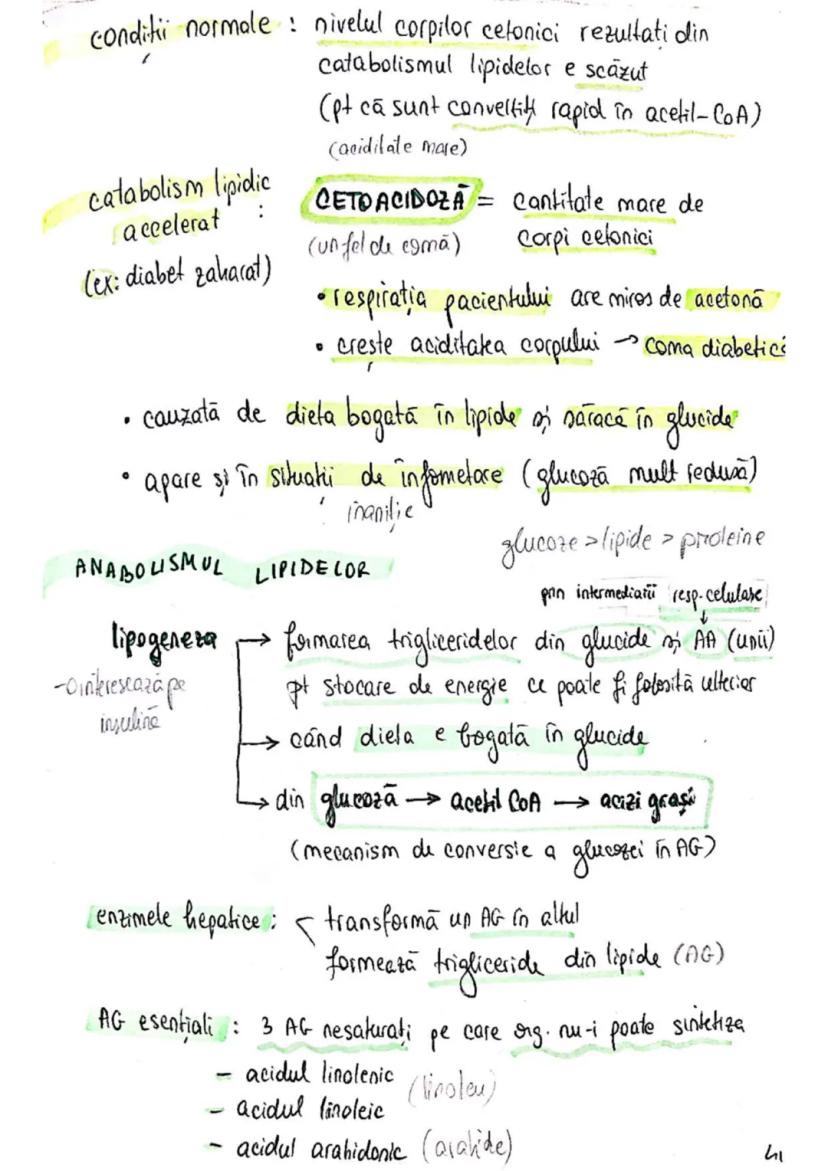 condiții normale : nivelul corpilor cetonici rezultați din
catabolismul lipidelor e scăzut
(pt că sunt convertiți rapid în acetil-CoA)
(aciditate mare)
catabolism lipidic accelerat : CETOACIDOZĂ = cantitate mare de
(ex: diabet zaharat) (un fel de comă) corpi cetonici
• respirația pacientului are miros de acetonă
• crește aciditatea corpului → coma diabetică
• cauzată de dieta bogată în lipide și săracă în glucide
• apare și în situații de înfometare (glucoză mult redusă)
inaniție
glucoze > lipide > proteine
ANABOLISMUL LIPIDELOR
prin intermediarii resp. celulare
lipogeneza → formarea trigliceridelor din glucide și AA (unii)
- o interesează pe insulină pt stocare de energie ce poate fi folosită ulterior
→ când dieta e bogată în glucide
→ din glucoză → acetil CoA → acizi grași
(mecanism de conversie a glucozei în AG)
enzimele hepatice : < transformă un AG în altul
formează trigliceride din lipide (AG)
AG esențiali : 3 AG nesaturați pe care org. nu-i poate sintetiza
- acidul linolenic (linoleu)
- acidul linoleic
- acidul arahidonic (arahide)
41